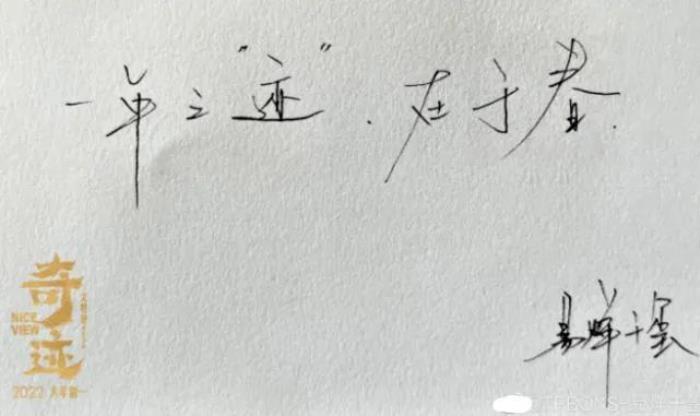 一年之“迹”.在于春.
奇迹
NICE VIEW
2022 大年初一
易烊千玺